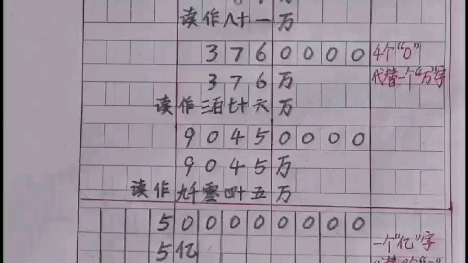 读作八十一万
3760000 4个"0"
376万 代替一个"万"字
读作三百七十六万
90450000
9045万
读作九千零四十五万
500000000 一个"亿"字
5亿